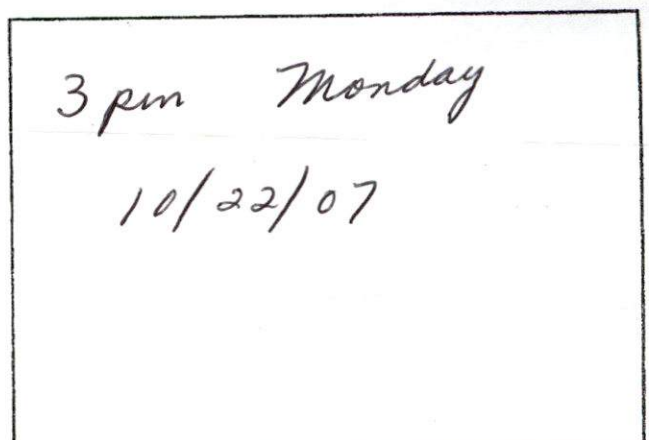 3 pm Monday
10/22/07